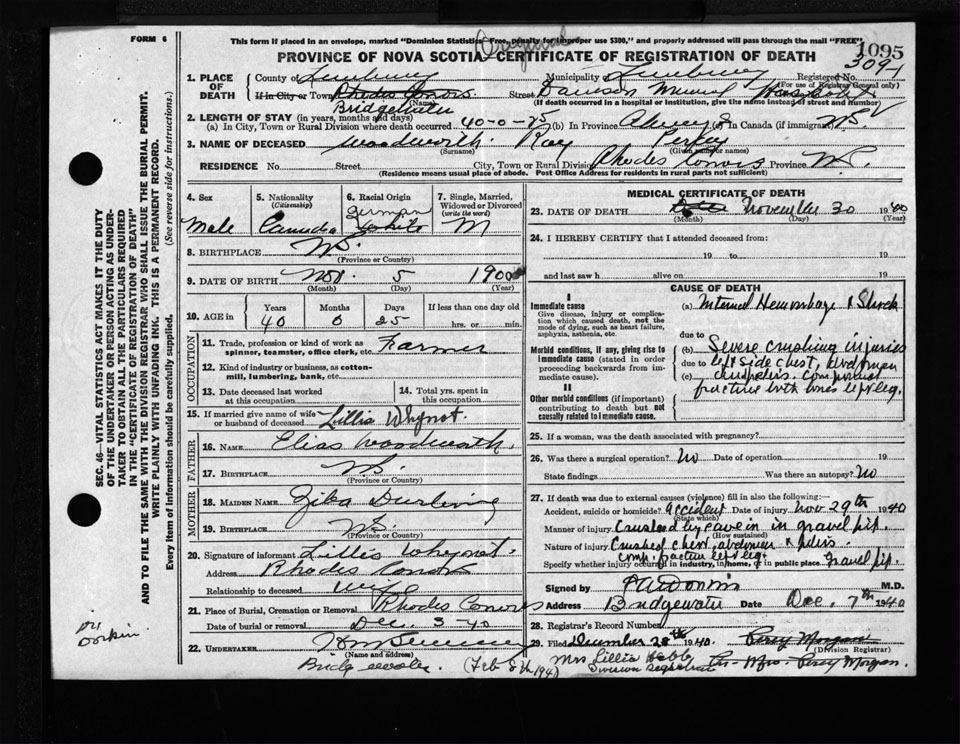 FORM 6
This form if placed in an envelope, marked "Dominion Statistics—Free, penalty for improper use $300," and properly addressed will pass through the mail "FREE."
Original
1095
PROVINCE OF NOVA SCOTIA—CERTIFICATE OF REGISTRATION OF DEATH
3091
1. PLACE OF DEATH
County of Lunenburg Municipality Lunenburg Registered No.
(For use of Registrar General only)
If in City or Town Rhodes Corner Street Dawson Memorial Hospital
(Name) (If death occurred in a hospital or institution, give the name instead of street and number)
Bridgewater
2. LENGTH OF STAY (in years, months and days)
(a) In City, Town or Rural Division where death occurred 40-0-25 (b) In Province Always (c) In Canada (if immigrant) N.S.
3. NAME OF DECEASED Woodworth Ray
(Surname) (Given name or names)
RESIDENCE No. Street. City, Town or Rural Division Rhodes Corner Province N.S.
(Residence means usual place of abode. Post Office Address for residents in rural parts not sufficient)
4. Sex Male
5. Nationality (Citizenship) Canada
6. Racial Origin German White
7. Single, Married, Widowed or Divorced (write the word) M
8. BIRTHPLACE N.S.
(Province or Country)
9. DATE OF BIRTH Nov. 5 1900
(Month) (Day) (Year)
10. AGE in Years Months Days If less than one day old
40 0 25 hrs. or min.
OCCUPATION
11. Trade, profession or kind of work as spinner, teamster, office clerk, etc. Farmer
12. Kind of industry or business, as cotton-mill, lumbering, bank, etc.
13. Date deceased last worked at this occupation
14. Total yrs. spent in this occupation
15. If married give name of wife or husband of deceased Lillia Whynot
FATHER
16. NAME Elias Woodworth
17. BIRTHPLACE N.S.
(Province or Country)
MOTHER
18. MAIDEN NAME Ziba
19. BIRTHPLACE N.S.
(Province or Country)
20. Signature of informant Lillis Whynot.
Address Rhodes Corner
Relationship to deceased wife
21. Place of Burial, Cremation or Removal Rhodes Corner
Date of burial or removal Dec. 3-40
22. UNDERTAKER
(Name and address)
Bridgewater
MEDICAL CERTIFICATE OF DEATH
23. DATE OF DEATH November 30 1940
(Month) (Day) (Year)
24. I HEREBY CERTIFY that I attended deceased from:
19 to 19
and last saw h alive on 19
CAUSE OF DEATH
I
Immediate cause
Give disease, injury or complication which caused death, not the mode of dying, such as heart failure, asphyxia, asthenia, etc.
(a) Internal Hemorrhage & Shock
due to
Morbid conditions, if any, giving rise to immediate cause (stated in order proceeding backwards from immediate cause).
(b) Severe crushing injuries
due to left side chest, abdomen
(c) and pelvis. Compound
fracture both bones left leg.
II
Other morbid conditions (if important) contributing to death but not causally related to immediate cause.
25. If a woman, was the death associated with pregnancy?
26. Was there a surgical operation? No Date of operation 19
State findings Was there an autopsy? No
27. If death was due to external causes (violence) fill in also the following:—
Accident, suicide or homicide? Accident Date of injury Nov 29th 1940
(State which)
Manner of injury Crushed by cave in in gravel pit.
(How sustained)
Nature of injury Crushed chest, abdomen & pelvis.
comp. fracture left leg.
Specify whether injury occurred in industry, in home, or in public place Gravel pit.
Signed by M.D.
Address Bridgewater Date Dec. 7th 1940
28. Registrar's Record Number
29. Filed December 28th 1940. Percy Morgan
(Division Registrar)
(Feb 8th 1941 Mrs Lillia Division Registrar Percy Morgan.
Dr Dorkin
SEC. 46—VITAL STATISTICS ACT MAKES IT THE DUTY OF THE UNDERTAKER OR PERSON ACTING AS UNDERTAKER TO OBTAIN ALL THE PARTICULARS REQUIRED IN THE "CERTIFICATE OF REGISTRATION OF DEATH"
AND TO FILE THE SAME WITH THE DIVISION REGISTRAR WHO SHALL ISSUE THE BURIAL PERMIT.
WRITE PLAINLY WITH UNFADING INK. THIS IS A PERMANENT RECORD.
Every item of Information should be carefully supplied. (See reverse side for Instructions.)